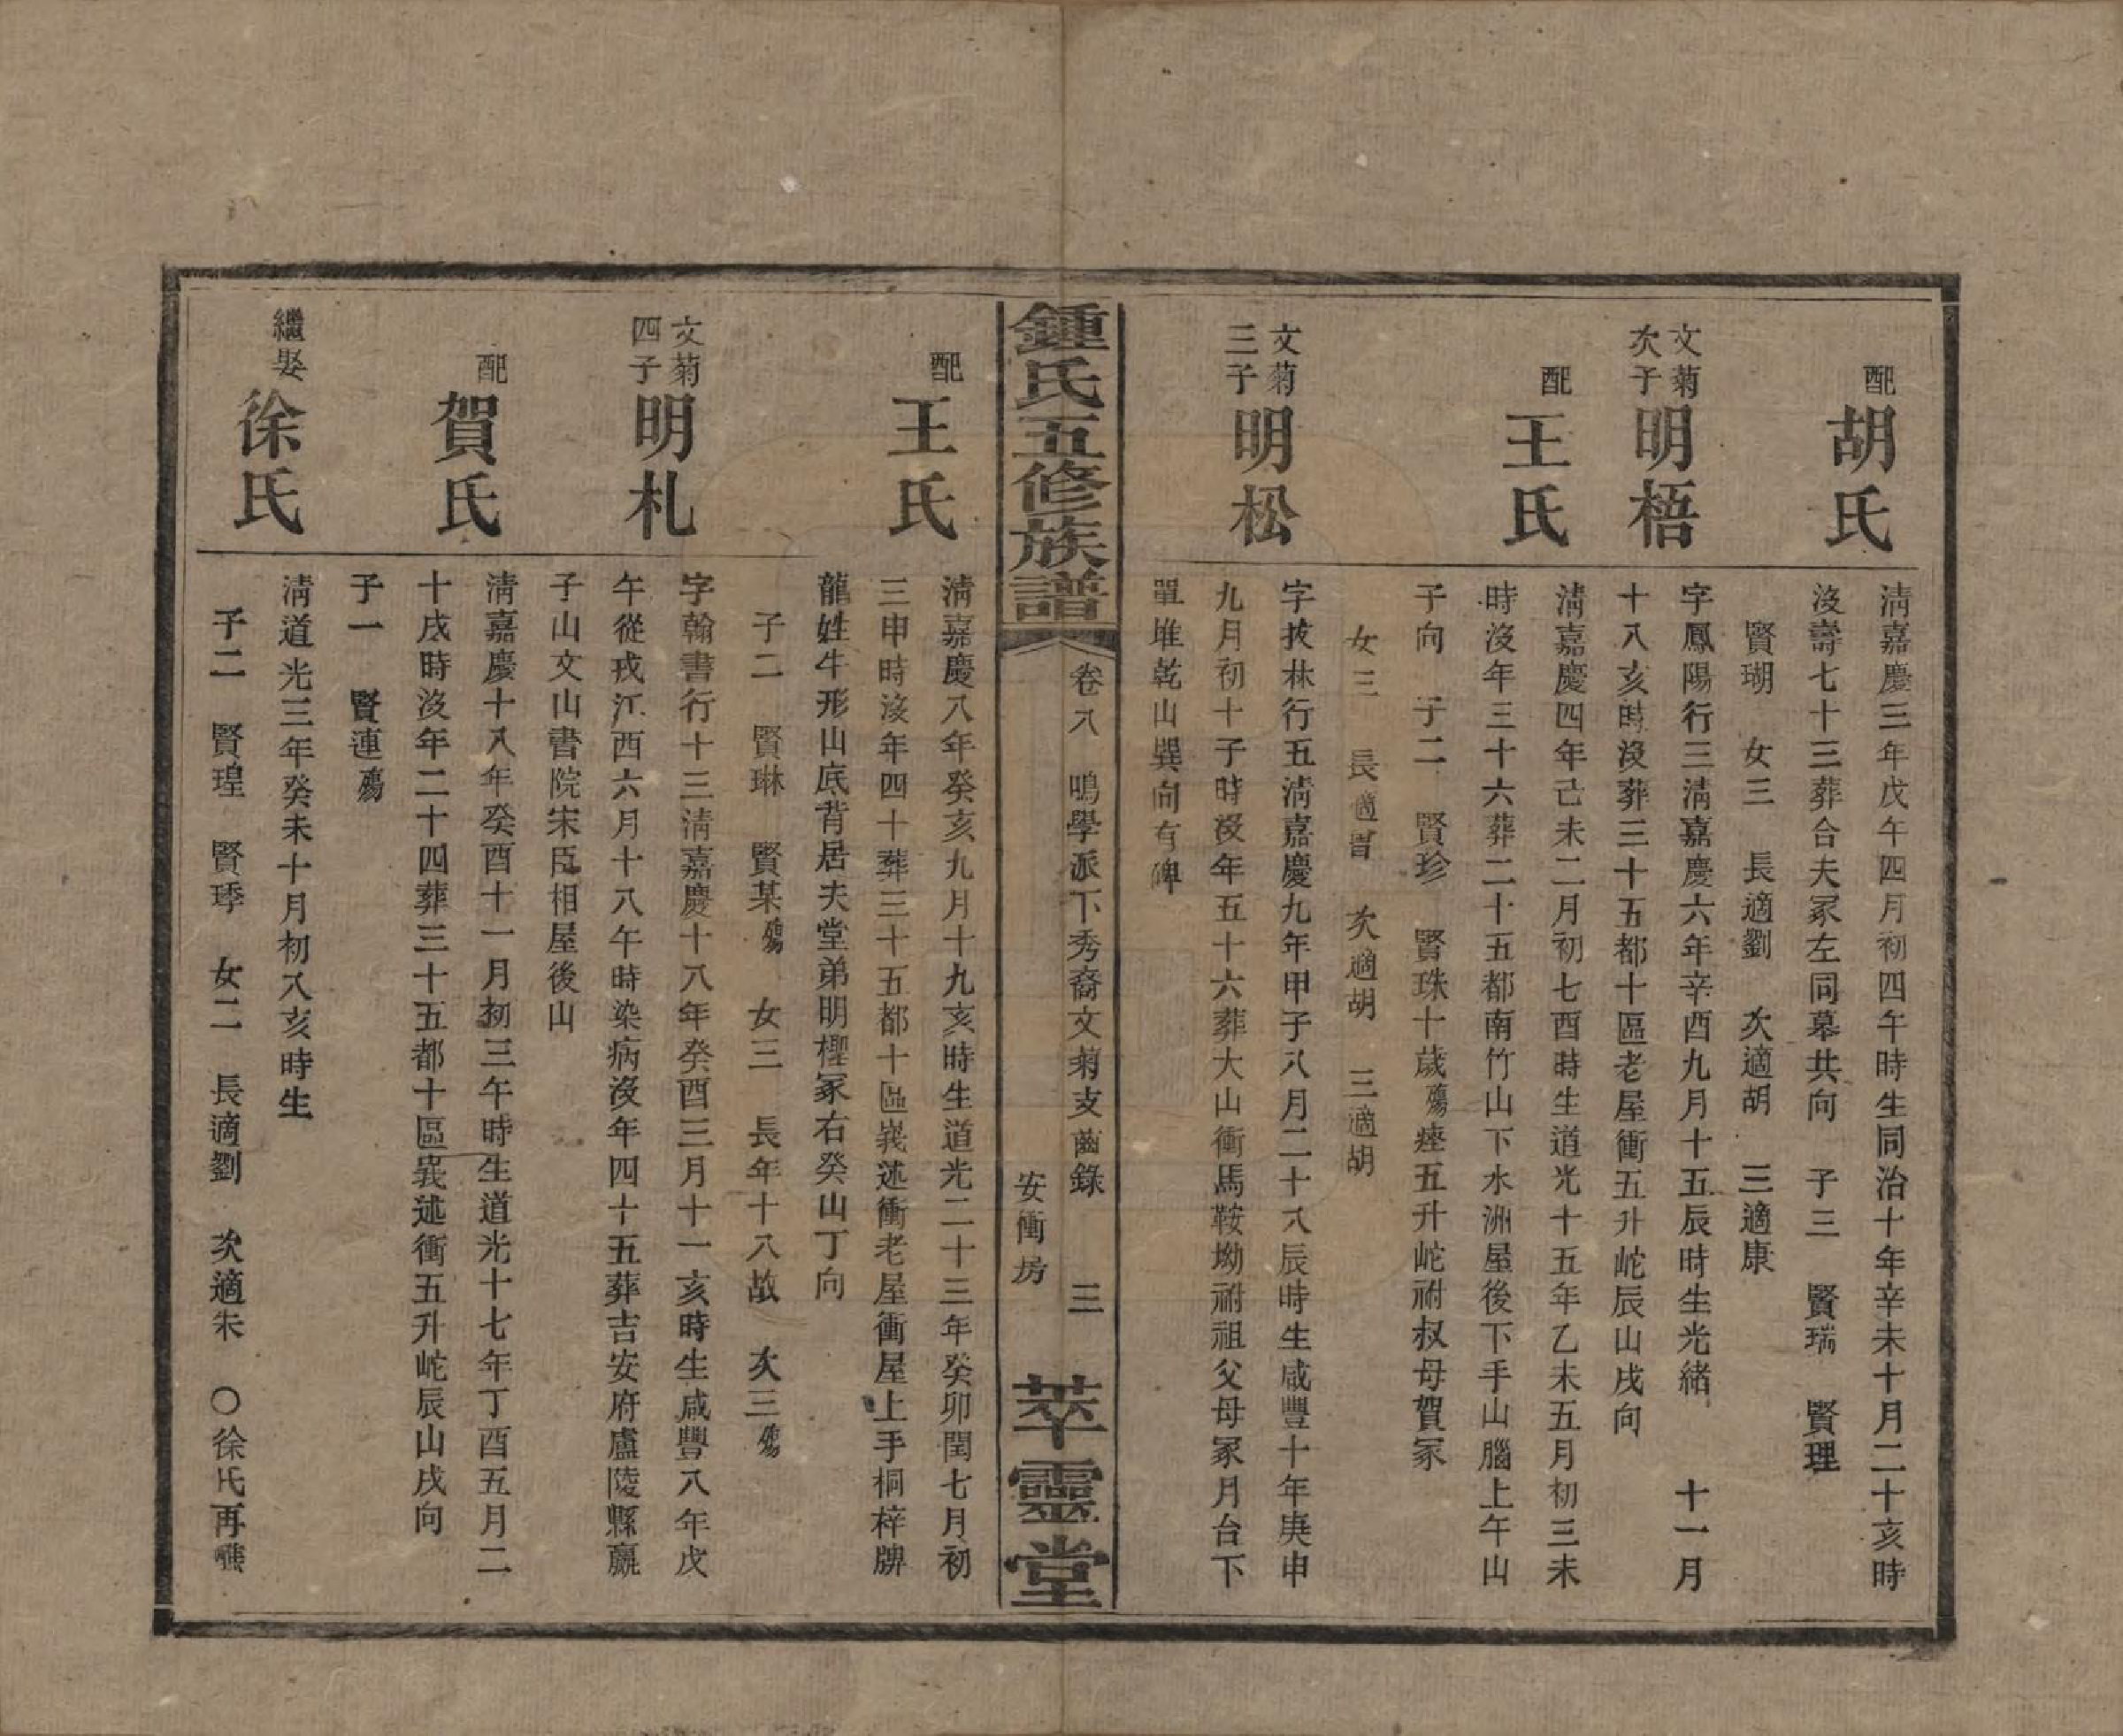 配
胡氏
清嘉慶三年戊午四月初四午時生同治十年辛未十月二十亥時
沒壽七十三葬合夫冢左同墓共向　子三　賢瑞　賢理
賢瑚　女三　長適劉　次適胡　三適康
文菊
次子
明梧
字鳳陽行三清嘉慶六年辛酉九月十五辰時生光緒　十一月
十八亥時沒葬三十五都十區老屋衝五升岮辰山戌向
配
王氏
清嘉慶四年己未二月初七酉時生道光十五年乙未五月初三未
時沒年三十六葬二十五都南竹山下水洲屋後下手山腦上午山
子向　子二　賢珍　賢珠十歲殤瘞五升岮祔叔母賀冢
女三　長適曾　次適胡　三適胡
文菊
三子
明松
字拔林行五清嘉慶九年甲子八月二十八辰時生咸豐十年庚申
九月初十子時沒年五十六葬大山衝馬鞍坳祔祖父母冢月台下
單堆乾山巽向有碑
鍾氏五修族譜
卷八　鳴學派下秀裔文菊支齒錄　三
安衝房
萃靈堂
配
王氏
清嘉慶八年癸亥九月十九亥時生道光二十三年癸卯閏七月初
三申時沒年四十葬三十五都十區峩述衝老屋衝屋上手桐梓牌
龍姓牛形山底背居夫堂弟明檉冢右癸山丁向
子二　賢琳　賢某殤　女三　長年十八故　次三殤
文菊
四子
明札
字翰書行十三清嘉慶十八年癸酉三月十一亥時生咸豐八年戊
午從戎江西六月十八午時染病沒年四十五葬吉安府廬陵縣贏
子山文山書院宋臣相屋後山
配
賀氏
清嘉慶十八年癸酉十一月初三午時生道光十七年丁酉五月二
十戌時沒年二十四葬三十五都十區峩述衝五升岮辰山戌向
子一　賢連殤
繼娶
徐氏
清道光三年癸未十月初八亥時生
子二　賢瑝　賢琇　女二　長適劉　次適朱　○徐氏再醮